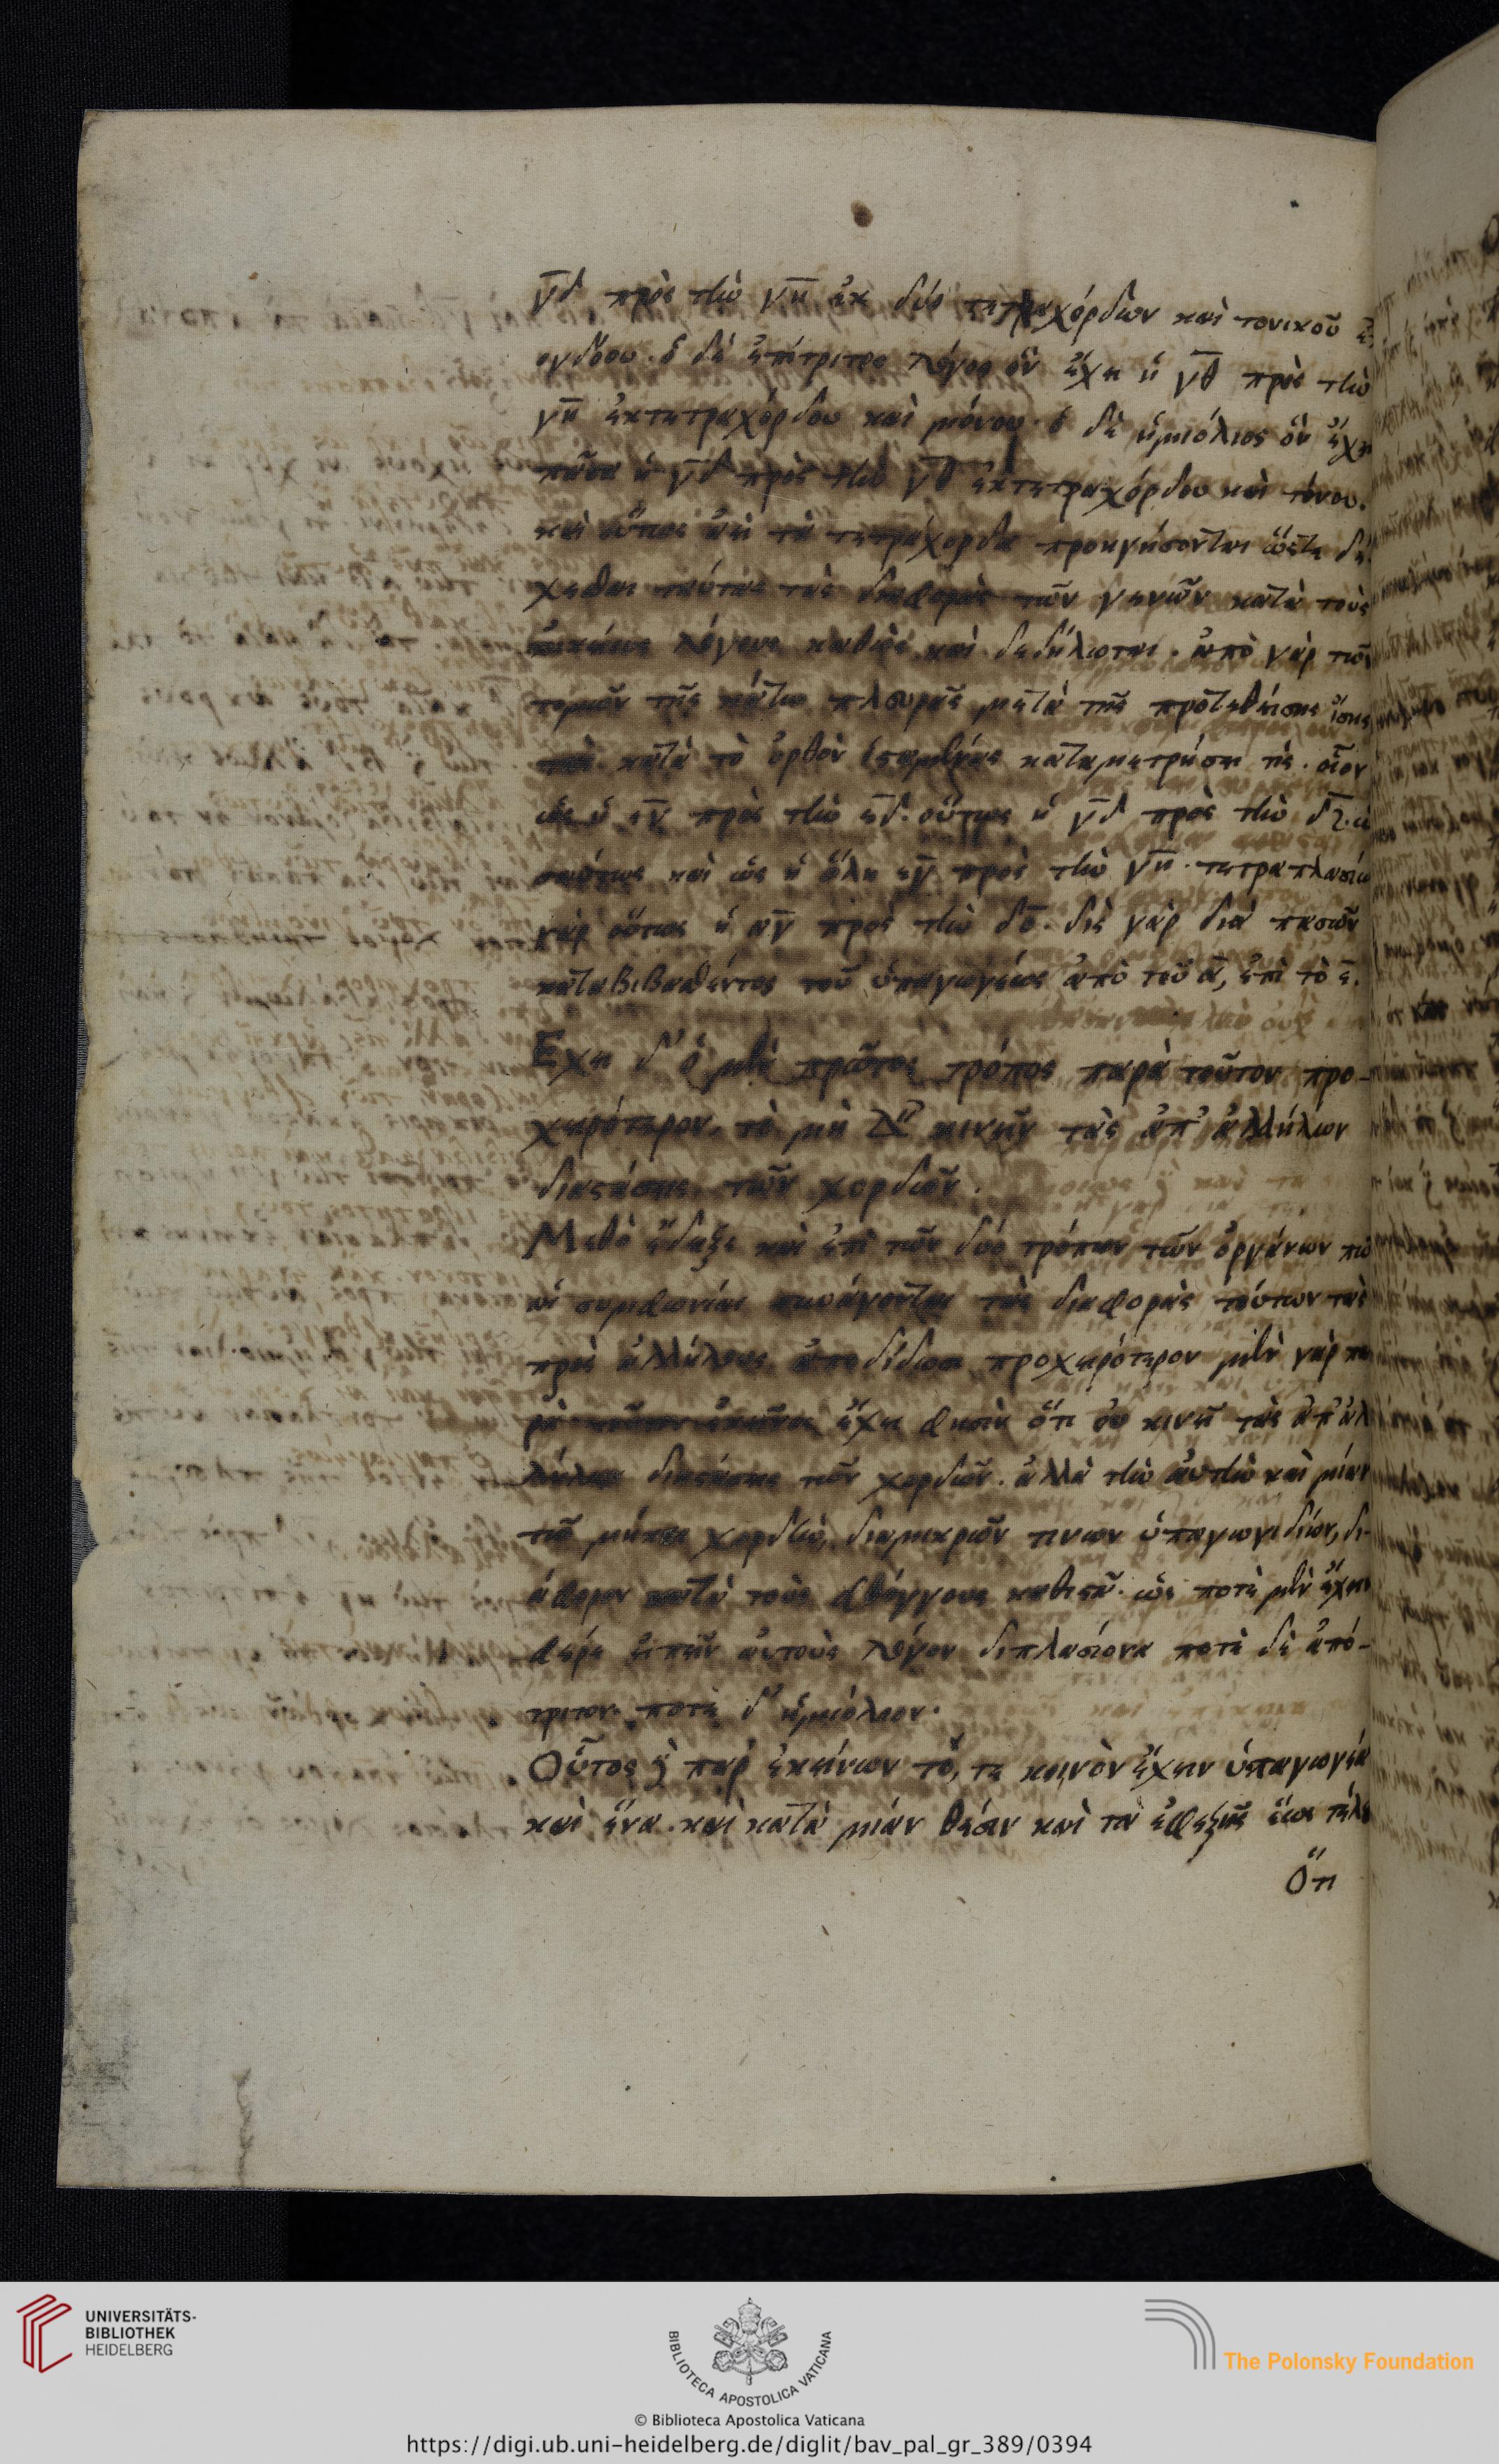 γδ πρὸς τὴν γη ἐκ δύο τετραχόρδων καὶ τονικοῦ
ογδόου. ὁ δὲ ἐπίτριτος λόγος ὃν ἔχει ἡ γθ πρὸς τὴν
γη ἐκτετραχόρδου καὶ μόνου. ὁ δὲ ἡμιόλιος ὃν ἔχει
πᾶσα ἡ γδ πρὸς τὴν γθ ἐκτετραχόρδου καὶ τόνου.
καὶ οὕτως ἀεὶ τὰ τετράχορδα προηγήσονται ὥστε δέ
χεσθαι ταύτας τὰς διαφορὰς τῶν γενῶν κατὰ τοὺς
λόγους καθὼς καὶ δεδήλωται. ἀπὸ γὰρ τῶν
τομῶν τῆς κάτω πλευρᾶς μετὰ τῆς προστεθείσης ἴσης
κατὰ τὸ ὀρθὸν ἱσταμένας καταμετρήσει τίς. οἷον
ὡς ἡ εγ πρὸς τὴν εδ. οὕτως ἡ γδ πρὸς τὴν δζ. ὡ
σαύτως καὶ ὡς ἡ ὅλη εγ πρὸς τὴν γη. τετραπλασίω
γὰρ οὕτως ἡ αγ πρὸς τὴν δε. δὶς γὰρ διὰ πασῶν
καταβιβασθέντος τοῦ ὑπαγωγέως ἀπὸ τοῦ α, ἐπὶ τὸ ε.
Εχει δ' ὁ μὲν πρῶτος τρόπος παρὰ τοῦτον προ-
χειρότερον, τὸ μὴ κινεῖν τὰς ἀπ' ἀλλήλων
διαστάσεις τῶν χορδῶν.
Μεθὸ ἔδειξε καὶ ἐπὶ τῶν δύο τρόπων τῶν ὀργάνων πῶ
αἱ συμφωνίαι συνάγονται τὰς διαφορὰς τούτων τὰς
πρὸς ἀλλήλους ἀποδίδωσι προχειρότερον μὲν γὰρ πα
ρὰ τοῦτον ἐκεῖνος ἔχει φησὶν ὅτι οὐ κινεῖ τὰς ἀπ' ἀλ
λήλων διαστάσεις τῶν χορδῶν. ἀλλὰ τὴν αὐτὴν καὶ μίαν
τῶ μήκει χορδὴν, διαμικρῶν τινων ὑπαγωγιδίων, δι-
άφορον κατὰ τοὺς φθόγγους καθιστᾷ. ὡς ποτὲ μὲν ἔχειν
φέρε εἰπεῖν αὐτοὺς λόγον διπλασίονα ποτὲ δὲ ἐπί-
τριτον. ποτὲ δ' ἡμιόλιον.
Οὗτος δὲ παρ' ἐκείνων τό, τε κοινὸν ἔχειν ὑπαγωγέα
καὶ ἕνα. καὶ κατὰ μίαν θέσιν καὶ τὰ ἐφεξῆς ἕως τέλ
Ὅτι
UNIVERSITÄTS-
BIBLIOTHEK
HEIDELBERG
BIBLIOTECA APOSTOLICA VATICANA
The Polonsky Foundation
© Biblioteca Apostolica Vaticana
https://digi.ub.uni-heidelberg.de/diglit/bav_pal_gr_389/0394